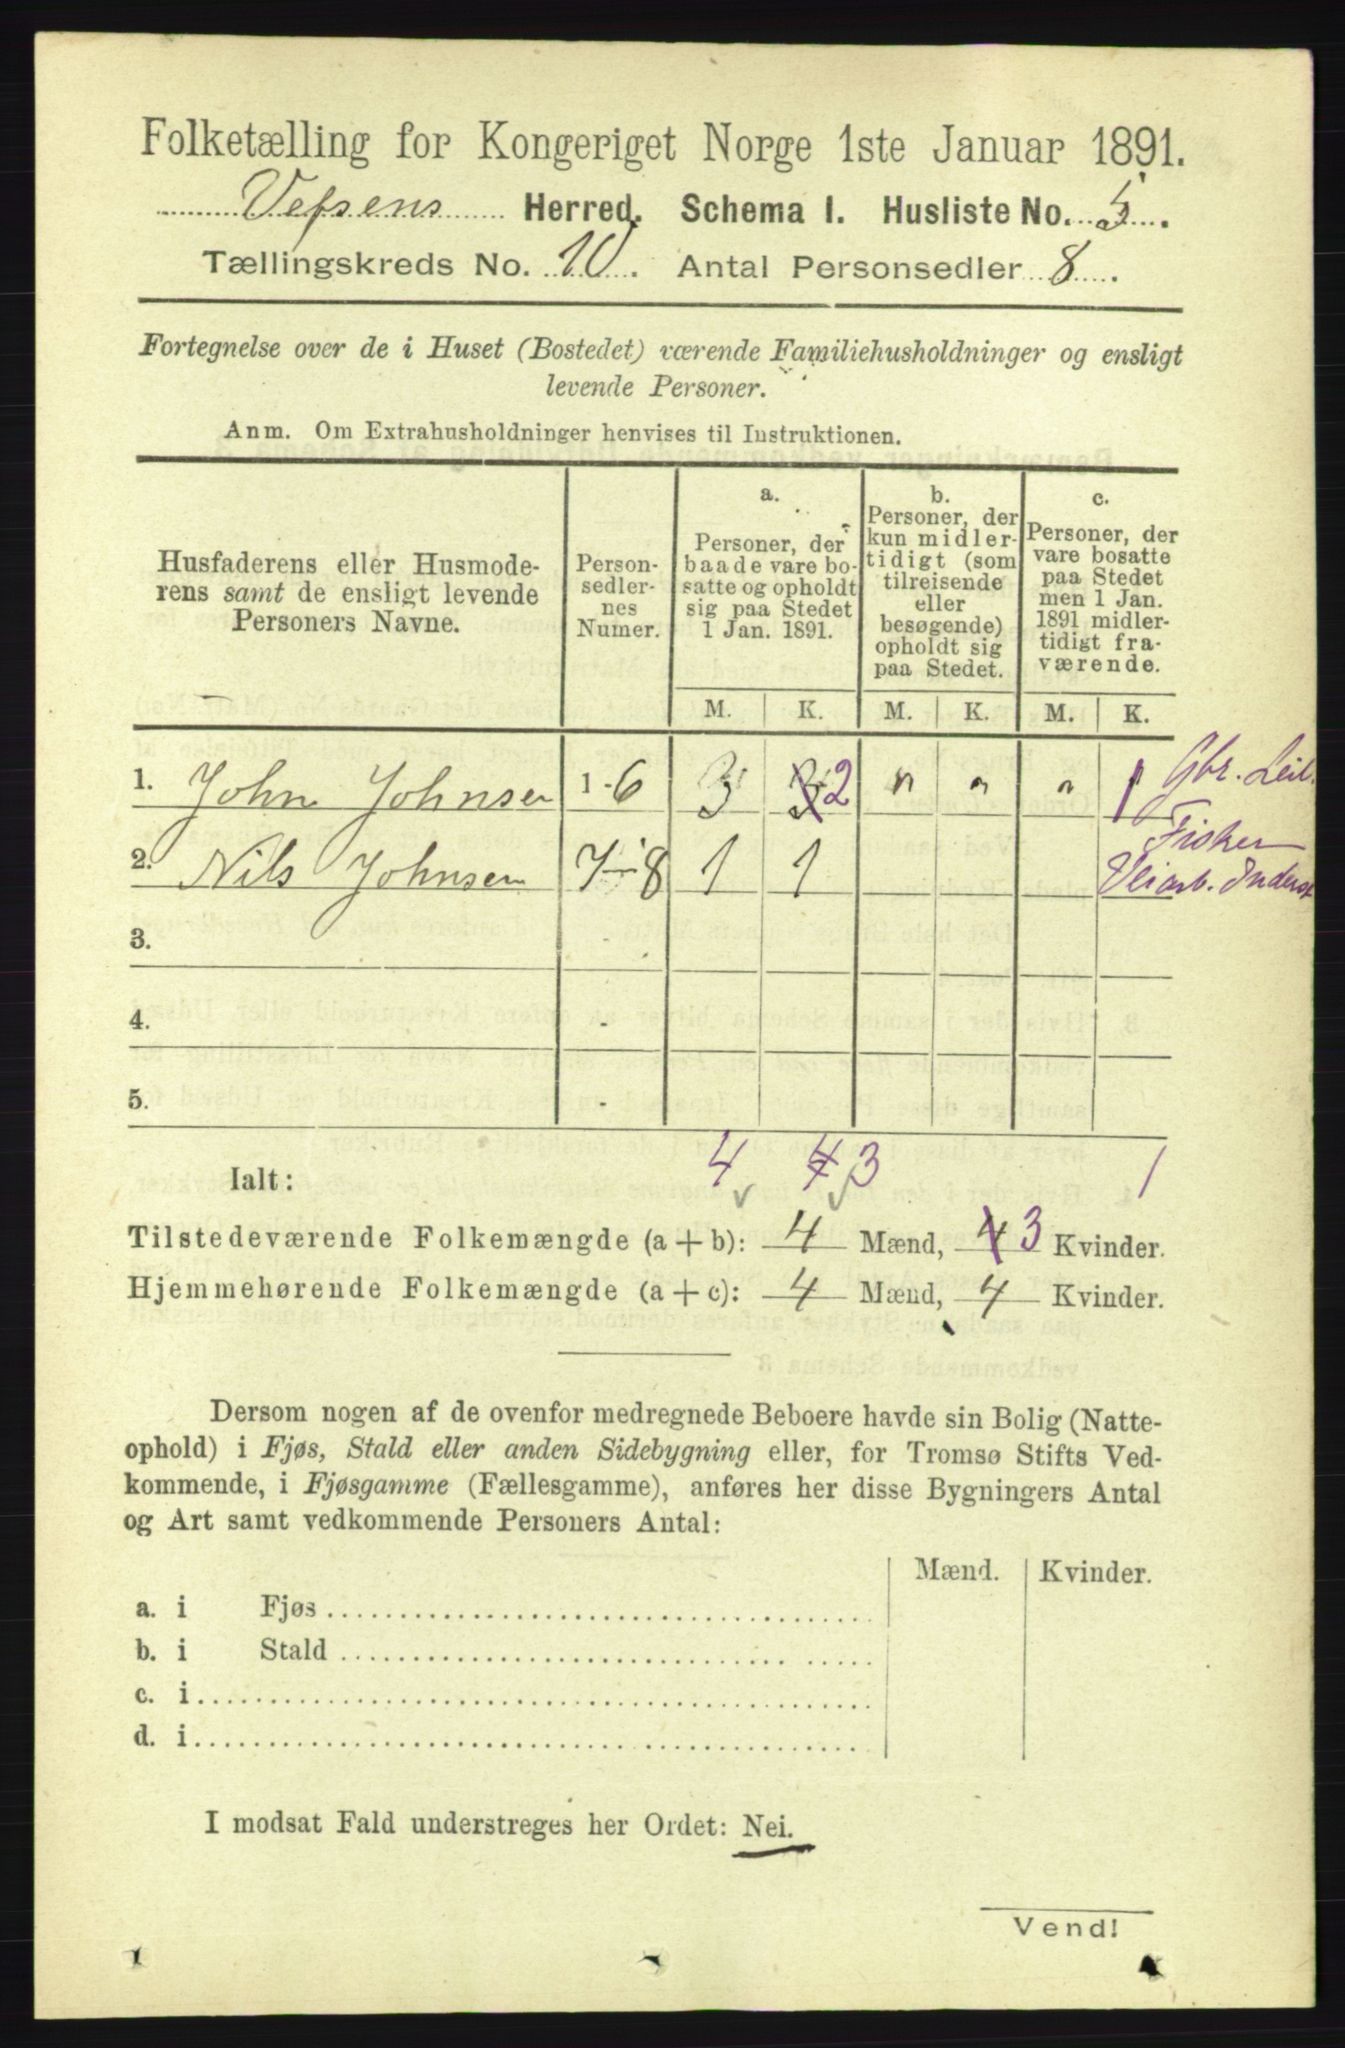 Folketælling for Kongeriget Norge 1ste Januar 1891.
Vefsens Herred. Schema I. Husliste No. 5.
Tællingskreds No. 10. Antal Personsedler 8.
Fortegnelse over de i Huset (Bostedet) værende Familiehusholdninger og ensligt
levende Personer.
Anm. Om Extrahusholdninger henvises til Instruktionen.
Husfaderens eller Husmode-
rens samt de ensligt levende
Personers Navne.
Person-
sedler-
nes
Numer.
a.
Personer, der
baade vare bo-
satte og opholdt
sig paa Stedet
1 Jan. 1891.
b.
Personer, der
kun midler-
tidigt (som
tilreisende
eller
besøgende)
opholdt sig
paa Stedet.
c.
Personer, der
vare bosatte
paa Stedet
men 1 Jan.
1891 midler-
tidigt fra-
værende.
M. K. M. K. M. K.
1. John Johnsen 1-6 3 3 2 " " " 1 Gbr. Leil.
Fisker
2. Nils Johnsen 7-8 1 1 Veiarb. Inderst
3. -
4. -
5. -
Ialt: 4 4 3 1
Tilstedeværende Folkemængde (a+b): 4 Mænd, 4 3 Kvinder.
Hjemmehørende Folkemængde (a+c): 4 Mænd, 4 Kvinder.
Dersom nogen af de ovenfor medregnede Beboere havde sin Bolig (Natte-
ophold) i Fjøs, Stald eller anden Sidebygning eller, for Tromsø Stifts Ved-
kommende, i Fjøsgamme (Fællesgamme), anføres her disse Bygningers Antal
og Art samt vedkommende Personers Antal:
Mænd. Kvinder.
a. i Fjøs
b. i Stald
c. i
d. i
I modsat Fald understreges her Ordet: Nei.
Vend!